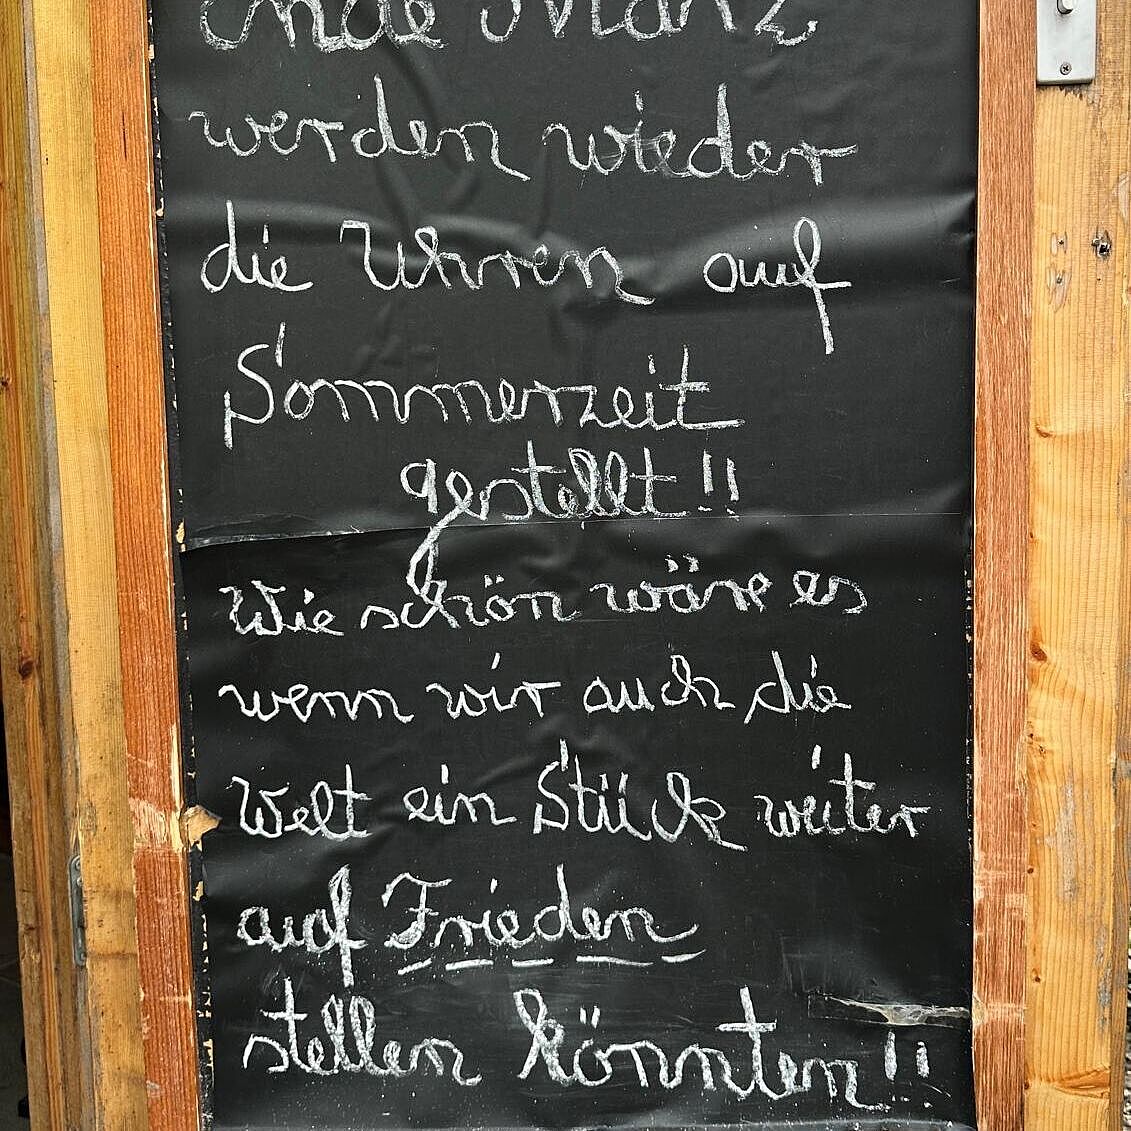 Ende März
werden wieder
die Uhren auf
Sommerzeit
gestellt!!
Wie schön wäre es
wenn wir auch die
Welt ein Stück weiter
auf Frieden
stellen könnten!!